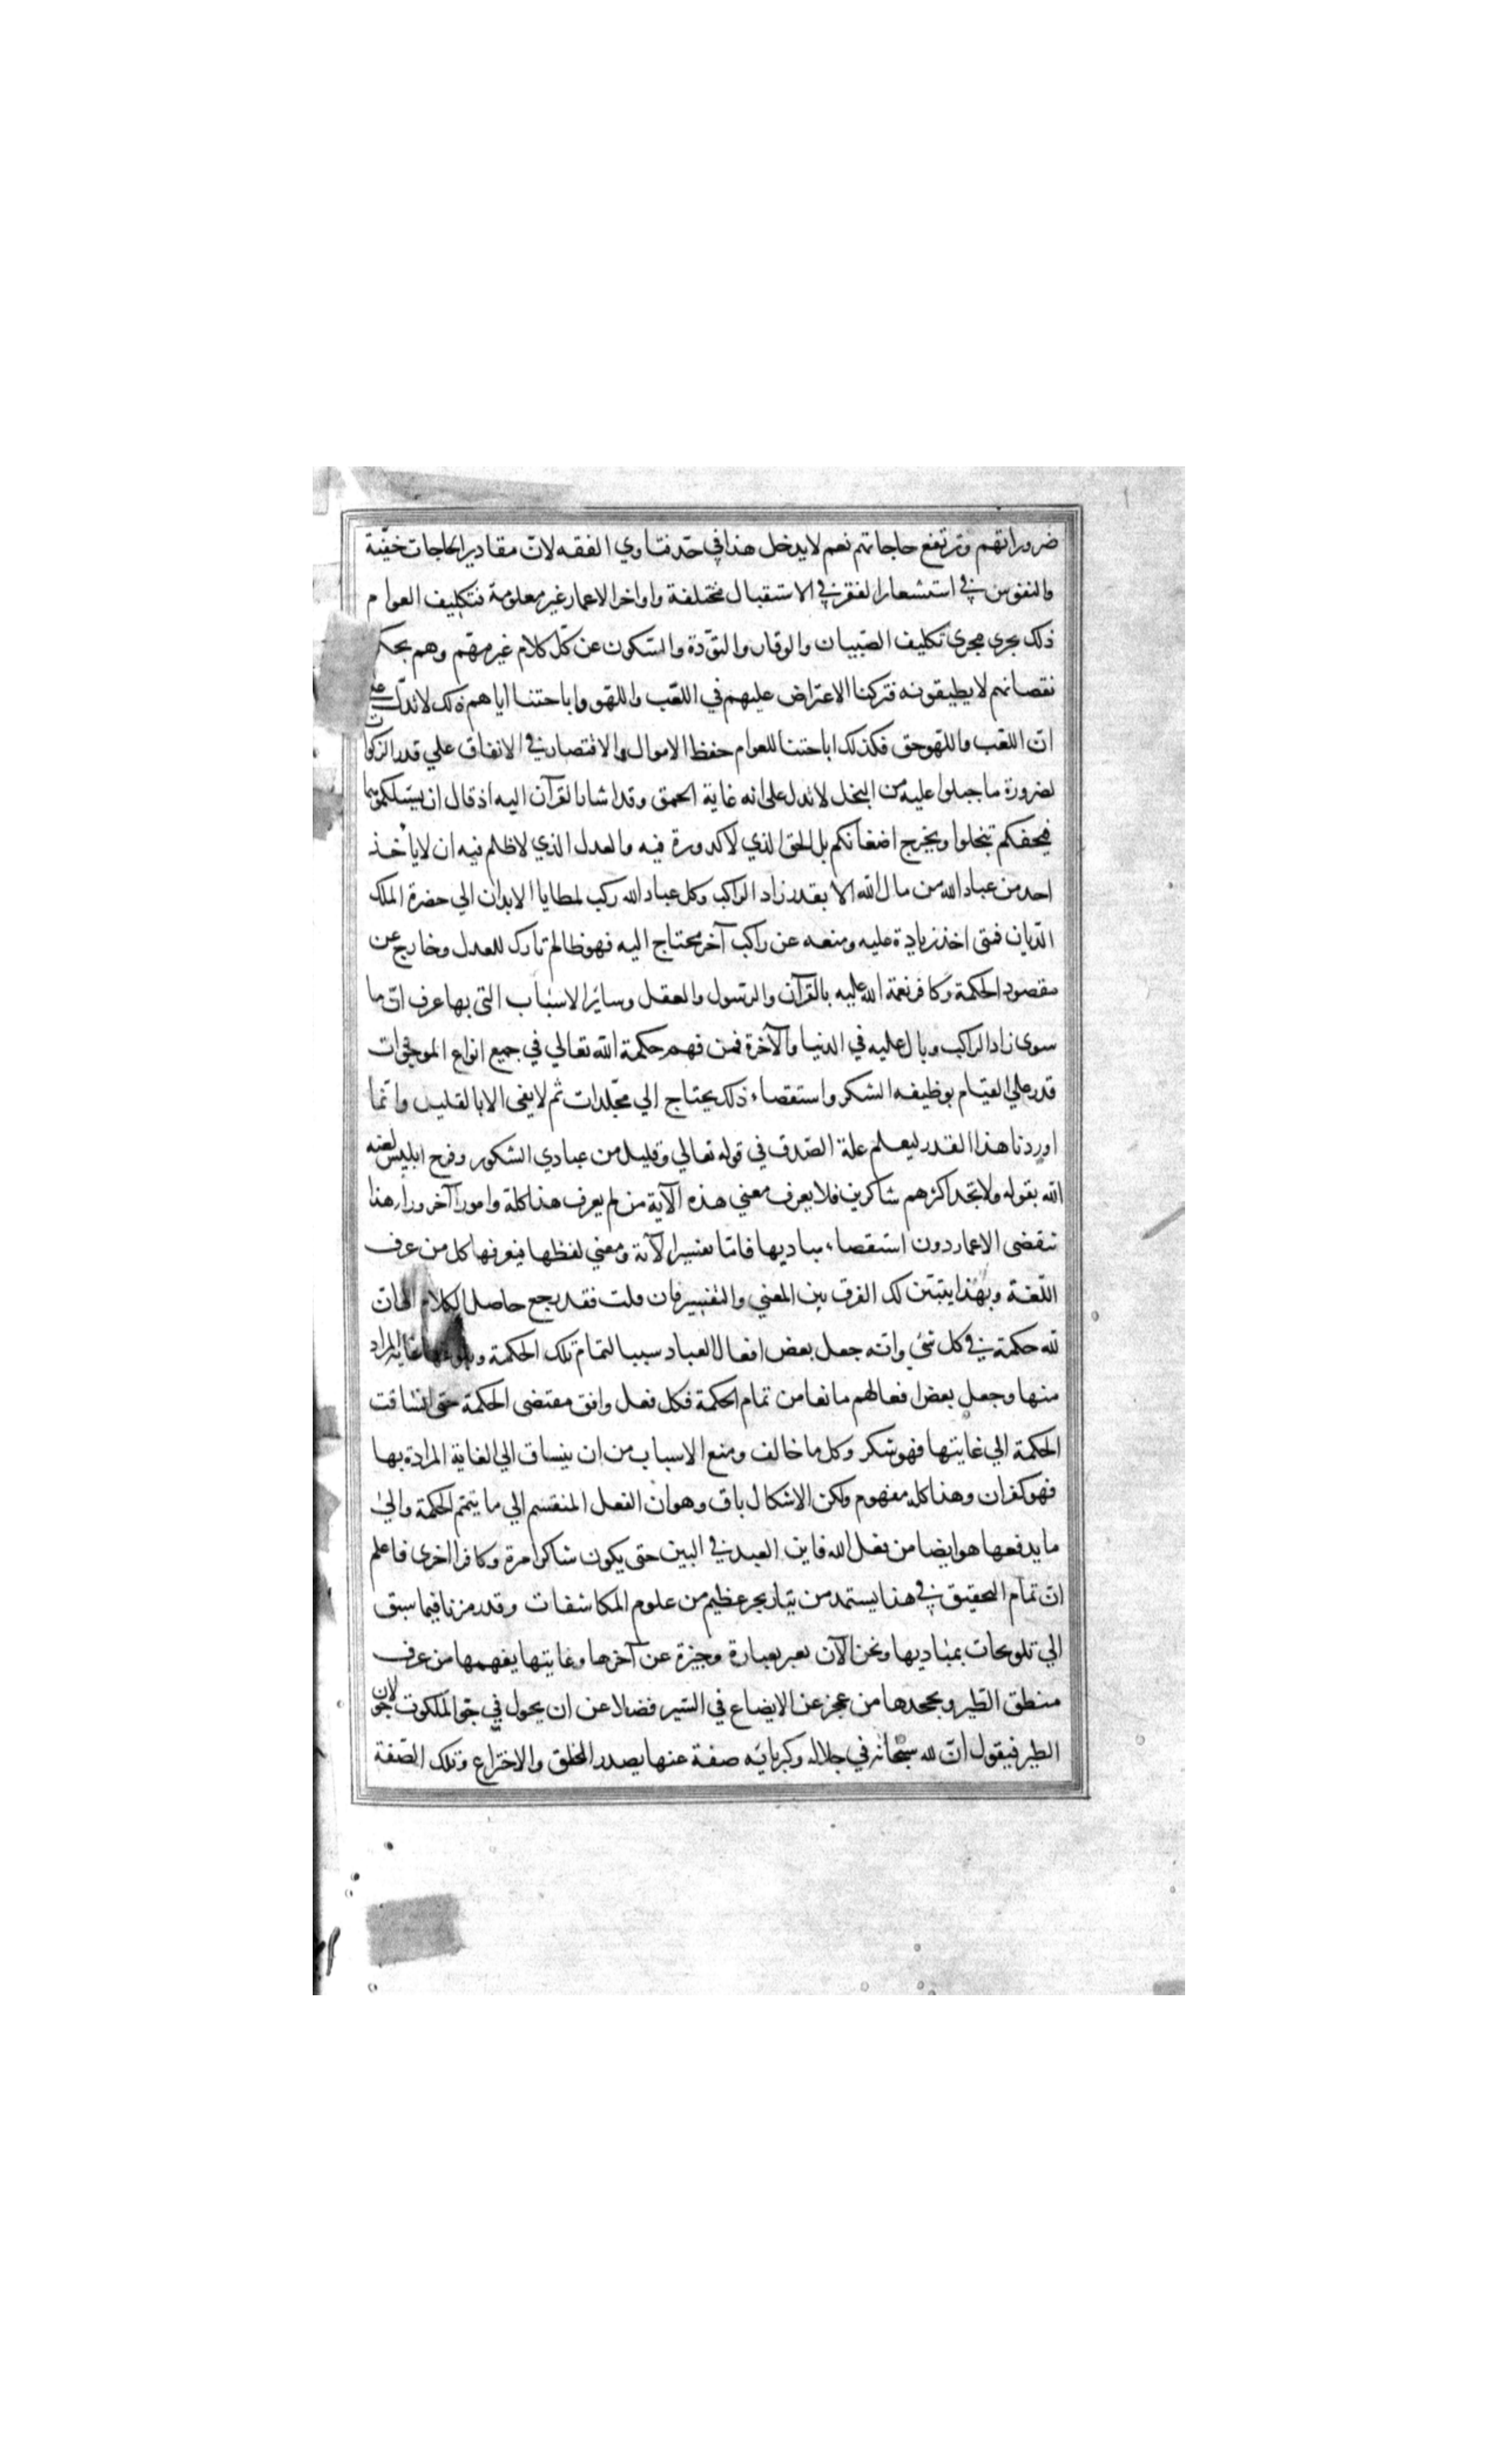 ضروراتهم وترتفع حاجاتهم نعم لا يدخل هذا في حدّ فتاوي الفقه لانّ مقادير الحاجات خفيّة
والنفوس في استشعار الفقر في الاستقبال مختلفة واواخر الاعمار غير معلومة فتكليف العوام
ذلك يجرى مجرى تكليف الصّبيان والوقار والتوّدة والسّكون عن كلّ كلام غير مهمّ وهم بحكم
نقصانهم لا يطيقونه فتركنا الاعتراض عليهم في اللعّب واللهّو واباحتنا اياهم ذلك لا تدلّ على
انّ اللعّب واللهو حق فكذلك اباحتنا للعوام حفظ الاموال والاقتصار في الانفاق علي قدر الزكوات
لضرورة ما جبلوا عليه من البخل لا تدل على انه غاية الحمق وقد اشار القرآن اليه اذ قال ان يسئلكموها
فيحفكم تبخلوا ويخرج اضغانكم بل الحق الذي لا كدورة فيه والعدل الذي لا ظلم فيه ان لا يأخذ
احد من عباد الله من مال الله الا بقدر زاد الراكب وكل عباد الله ركب لمطايا الابدان الي حضرة الملك
الدّيان فمتى اخذ زيادة عليه ومنعه عن راكب آخر محتاج اليه فهو ظالم تارك للعدل وخارج عن
مقصود الحكمة وكافر نعمة الله عليه بالقرآن والرسول والعقل وسائر الاسباب التى بها عرف انّ ما
سوى زاد الراكب وبال عليه في الدنيا والآخرة فمن فهم حكمة الله تعالي في جميع انواع الموجودات
قدر علي القيام بوظيفه الشكر واستقصاء ذلك يحتاج الي مجلّدات ثم لا يفى الا بالقليل وانّما
اوردنا هذا القدر ليعلم علة الصّدق في قوله تعالي وقليل من عبادي الشكور وفرح ابليس لعنه
الله بقوله ولا تجد اكثرهم شاكرين فلا يعرف معني هذه الآية من لم يعرف هذا كلة وامورا آخر وراء هذا
تنقضى الاعمار دون استقصاء مباديها فامّا تفسير الآية ومعني لفظها فيعرفها كل من عرف
اللّغة وبهذا يتبيّن لك الفرق بين المعني والتفسير فان قلت فقد رجع حاصل الكلام الى انّ
لله حكمة في كل شئ وانّه جعل بعض افعال العباد سببا لتمام تلك الحكمة وبلوغها غاية المراد
منها وجعل بعض افعالهم مانعا من تمام الحكمة فكل فعل وافق مقتضى الحكمة حتى انساقت
الحكمة الي غايتها فهو شكر وكل ما خالف ومنع الاسباب من ان ينساق الي الغاية المرادة بها
فهو كفران وهذا كله مفهوم ولكن الاشكال باق وهو ان الفعل المنقسم الي ما يتمّم الحكمة والي
ما يدفعها هو ايضا من فعل الله فاين العبد في البين حتى يكون شاكرا مرة وكافرا اخرى فاعلم
انّ تمام التحقيق في هذا يستمد من تيّار بحر عظيم من علوم المكاشفات وقد رمزنا فيما سبق
الي تلويحات بمباديها ونحن الآن نعبر بعبارة وجيزة عن آخرها وغايتها يفهمها من عرف
منطق الطّير ويجحدها من عجز عن الايضاع في السّير فضلا عن ان يجول في جوّ الملكوت جولان
الطير فيقول انّ لله سبحانه في جلاله وكبريائه صفة عنها يصدر الخلق والاختراع وتلك الصّفة